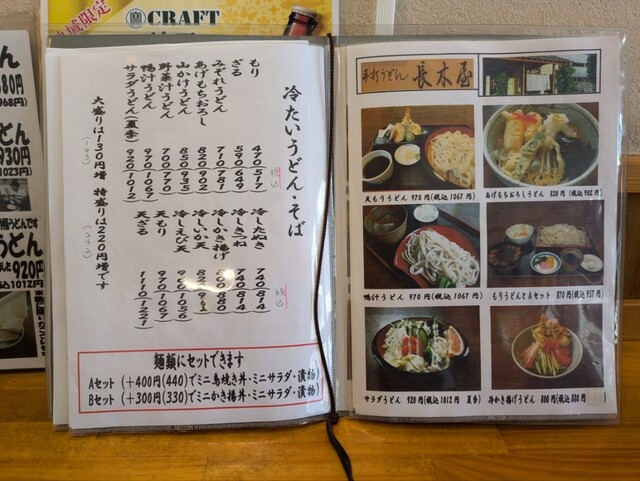 地域限定
CRAFT
880円
968円)
どん
930円
(1023円)
うどん
920円
1012円
冷たいうどん・そば
税込
もり 470 517
ざる 590 649
みぞれうどん 710 781
あげもちおろし 820 902
山かけうどん 850 935
野菜汁うどん 700 770
鴨汁うどん 970 1067
サラダうどん(夏季) 920 1012
大盛りは130円増 特盛りは220円増です
(143)
(242)
税込
冷したぬき 740 814
冷しきつね 740 814
冷しかき揚げ 800 880
冷しいか天
冷しえび天 960 1056
天もり 970 1067
天ざる 1110 1221
麺類にセットできます
Aセット (+400円(440)でミニ鳥焼き丼・ミニサラダ・漬物)
Bセット (+300円(330)でミニかき揚丼・ミニサラダ・漬物)
手打うどん 長木屋
天もりうどん 970円(税込1067円)
あげもちおろしうどん 820円(税込902円)
鴨汁うどん 970円(税込1067円)
もりうどんとAセット 870円(税込957円)
サラダうどん 920円(税込1012円 夏季)
冷かき揚げうどん 800円(税込880円)